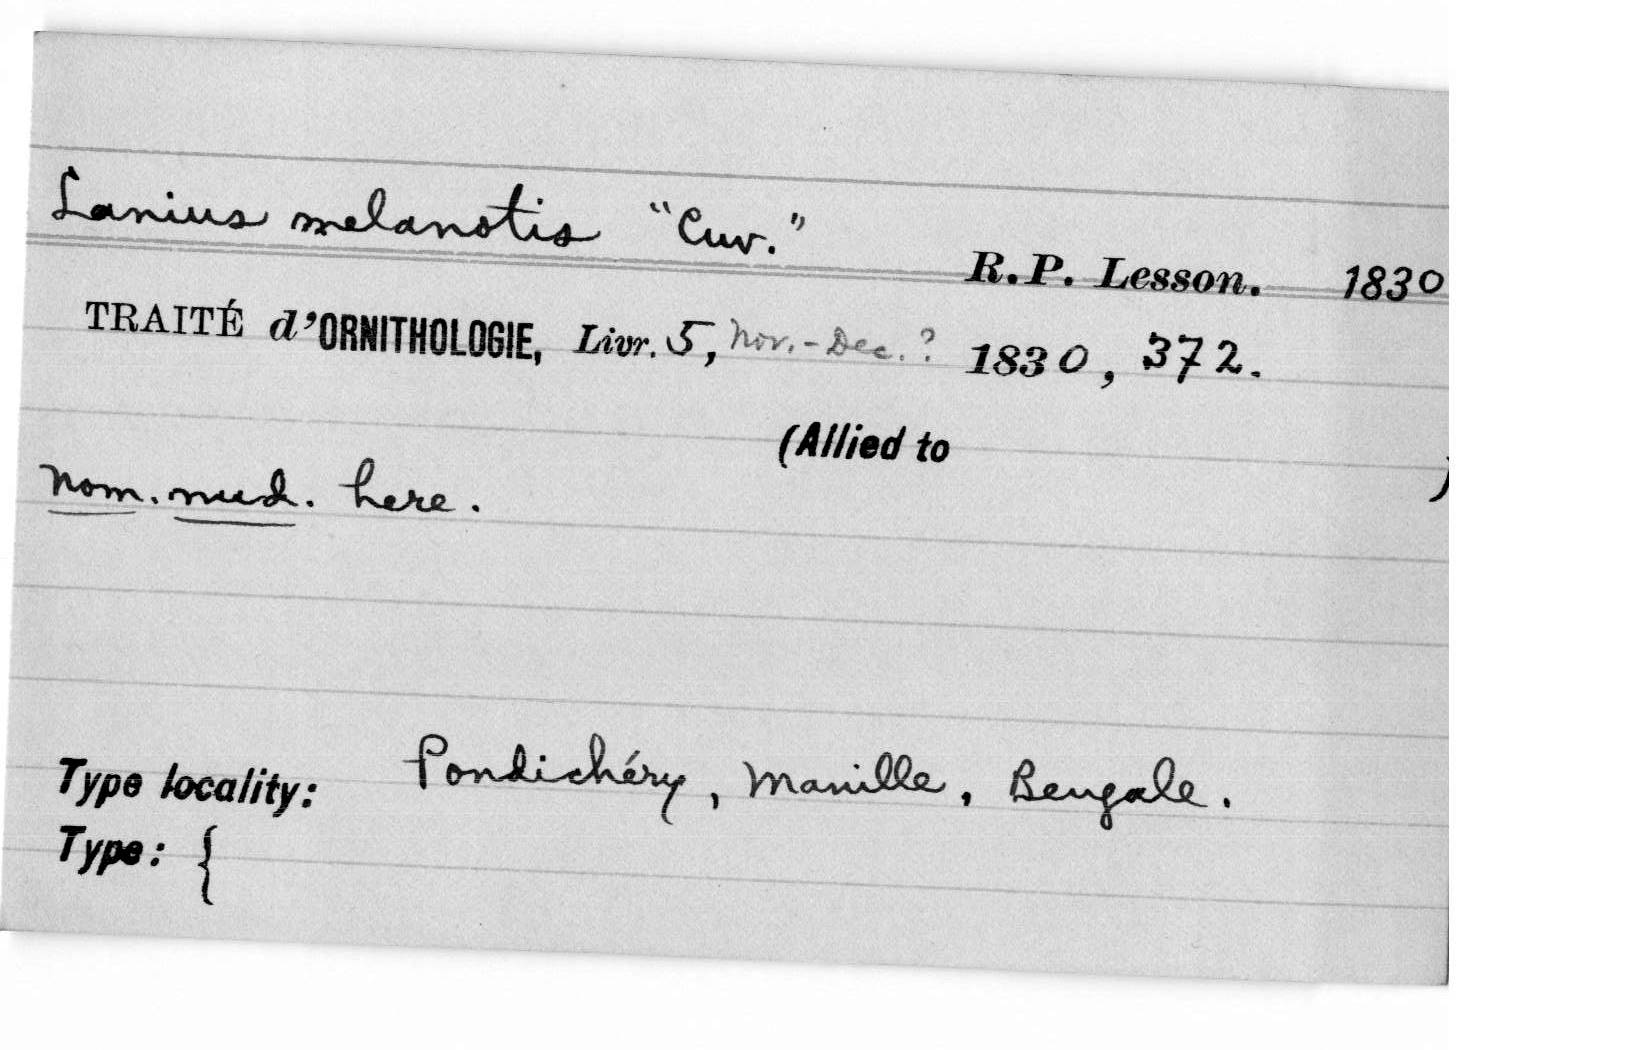 Lanius melanotis "Cuv."
R.P. Lesson. 1830
TRAITÉ d'ORNITHOLOGIE, Livr. 5, Nov.-Dec.? 1830, 372.
(Allied to )
nom. nud. here.
Type locality: Pondichéry, Manille, Bengale.
Type: {